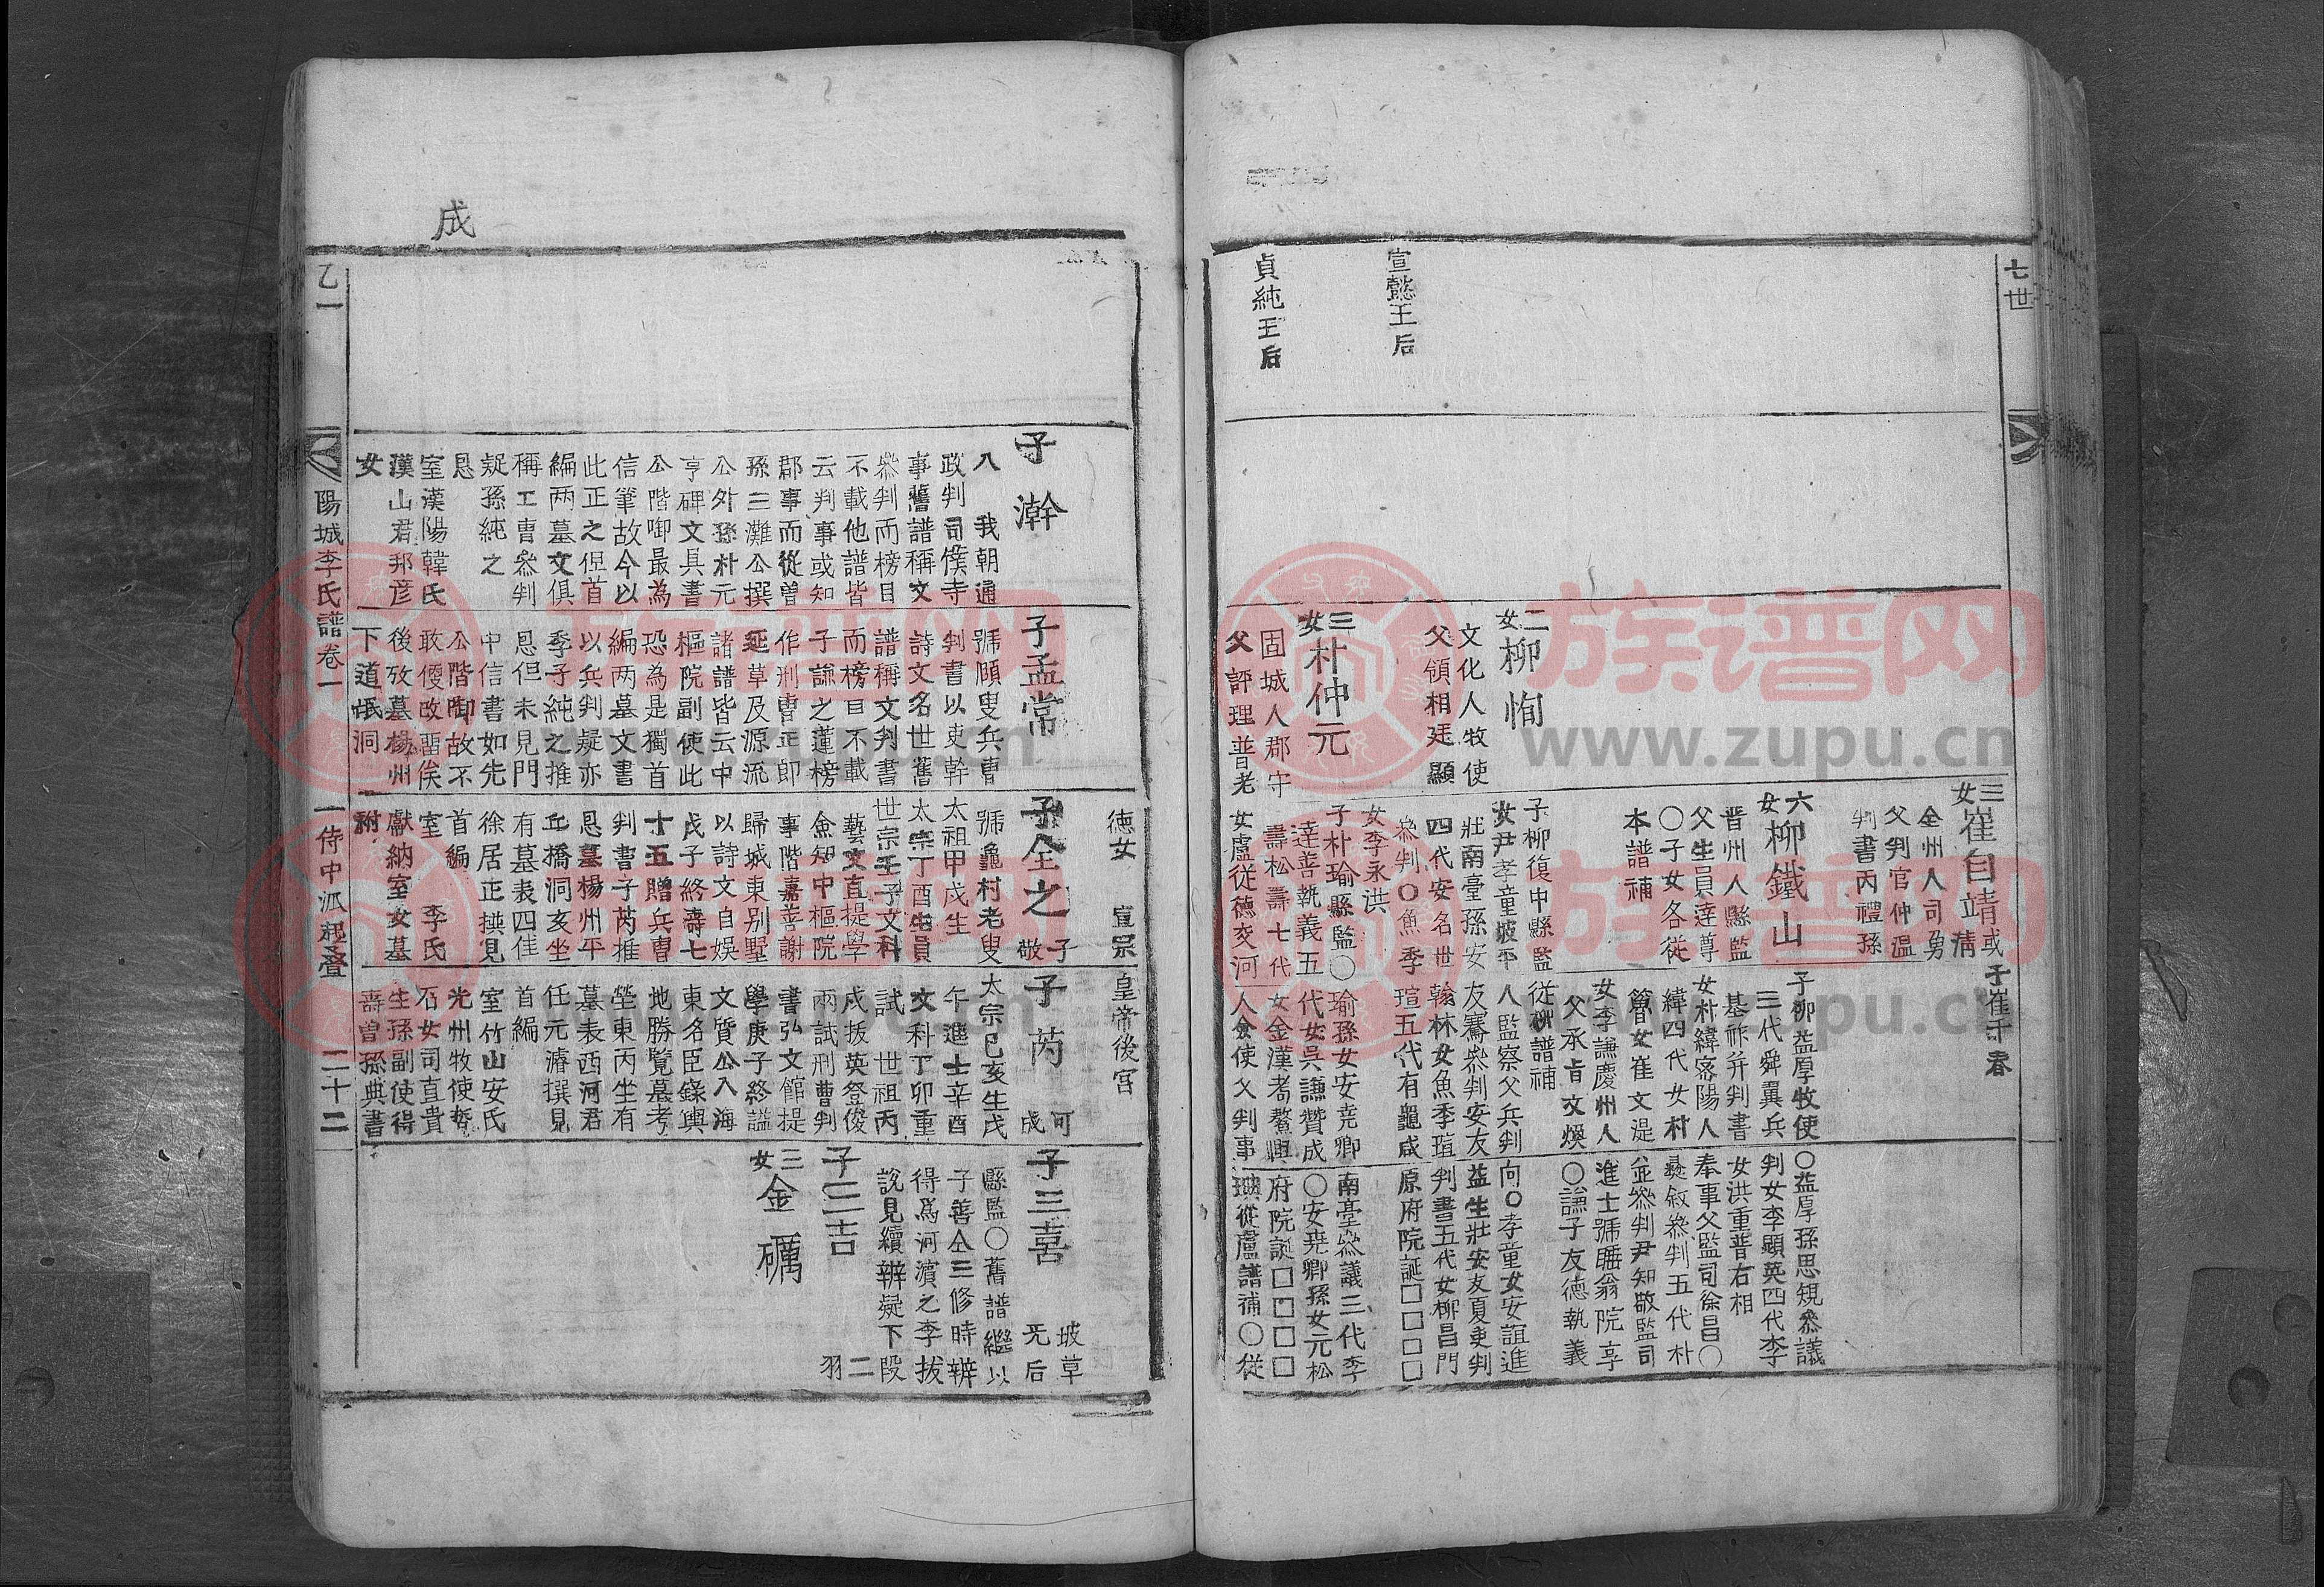 七世
宣懿王后
貞純王后
二女 柳恂
文化人牧使
父領相廷顯
三女 朴仲元
固城人郡守
父評理普老
三女 崔自靖 或清
全州人司勇
父判官仲温
判書丙禮孫
六女 柳鐵山
晋州人縣監
父生員達尊
〇子女各從
本譜補
子柳復中縣監從柳譜補
女尹孝童坡平人監察父兵判向〇孝童女安誼進
壯南臺孫安友騫叅判安友益生壯安友夏吏判
四代安名世翰林女魚季瑄判書五代女柳昌門
叅判〇魚季瑄五代有龜咸原府院誕□□□□
女李永洪
子朴瑜縣監〇瑜孫女安堯卿南臺叅議三代李
達善執義五代女吳謙贊成〇安堯卿孫女元松
壽松壽七代女金漢耉鰲興府院誕□□□□
女盧從德交河人僉使父判事璵從盧譜補〇從
子崔千春
子柳益厚牧使〇益厚孫思規叅議
三代舜翼兵判女李顯英四代李
基祚并判書女洪重普右相
女朴緯密陽人奉事父監司徐昌〇
緯四代女村彝敘叅判五代朴
簹女崔文湜並叅判尹知敬監司
女李謙慶州人進士號睡翁院享
父承旨文煥〇謙子友德執義
成
子瀚
八 我朝通
政判司僕寺
事舊譜稱文
叅判而榜目
不載他譜皆
云判事或知
郡事而從曾
孫三灘公撰
公外孫朴元
亨碑文具書
公階啣最為
信筆故今以
此正之但首
編两墓文俱
稱工曹叅判
疑孫純之
恩
室漢陽韓氏
漢山君邦彦
女
子孟常
號頤叟兵曹
判書以吏幹
詩文名世舊
譜稱文判書
而榜目不載
子謙之蓮榜
作刑曹正郎
延草及源流
諸譜皆云中
樞院副使此
恐為是獨首
編两墓文書
以兵判疑亦
季子純之推
恩但未見門
中信書如先
公階啣故不
敢便改畱俟
後攷墓楊州
下道峴洞
德女 宣宗皇帝後宮
子全之 子敬
號龜村老叟
太祖甲戌生
太宗丁酉生員
世宗壬子文科
藝文直提學
僉知中樞院
事階嘉善謝
歸城東别墅
以詩文自娱
戊子終壽七
十五贈兵曹
判書子芮推
恩墓楊州平
丘橋洞亥坐
有墓表四佳
徐居正撰見
首編
室 李氏
獻納室女墓
祔
子芮 可成
太宗己亥生戊
午進士辛酉
文科丁卯重
試 世祖丙
戌拔英登俊
兩試刑曹判
書弘文館提
學庚子終謚
文質公入海
東名臣錄輿
地勝覧墓考
塋東丙坐有
墓表西河君
任元濬撰見
首編
室竹山安氏
光州牧使哲
石女司直貴
生孫副使得
壽曽孫典書
子三喜 坡草无后
縣監〇舊譜繼以
子善仝三修時辨
得爲河濱之李拔
説見續辨疑下段
子三吉 二羽
三女 金礪
乙一
陽城李氏譜卷一
一侍中派起疊
二十二
族谱网
www.zupu.cn